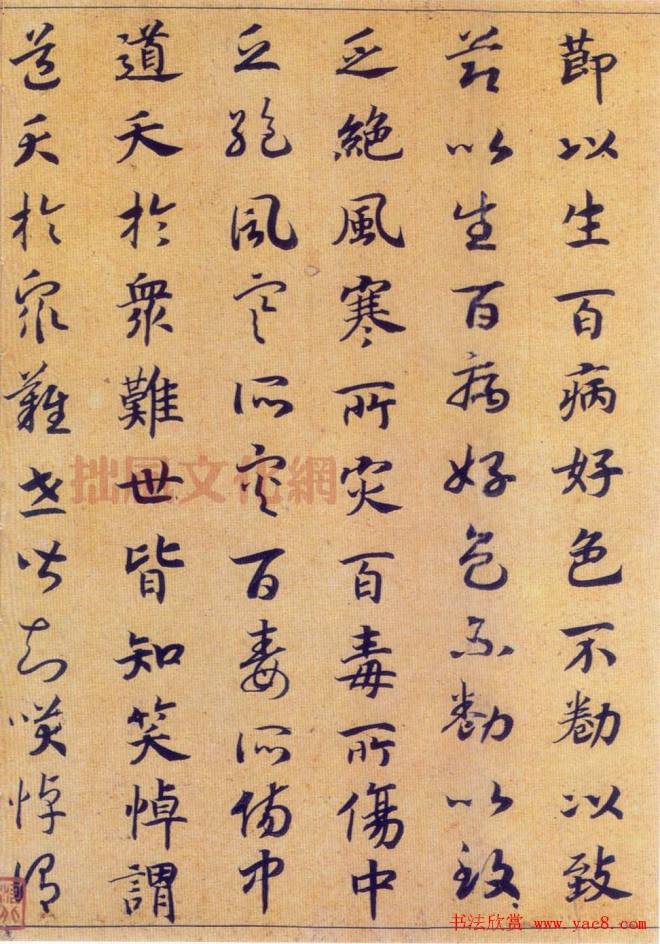 節以生百病好色不勌以致
節以生百病好色不勌以致
乏絶風寒所灾百毒所傷中
乏絶風寒所灾百毒所傷中
道夭於衆難世皆知笑悼謂
道夭於衆難世皆知笑悼謂
拙風文化網
书法欣赏 www.yac8.com